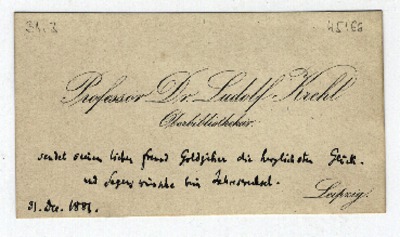 Professor Dr. Ludolf Krehl
Oberbibliothekar.
sendet seinen lieben Freund Goldziher die herzlichsten Glück-
und Segenswünsche beim Jahreswechsel.
Leipzig.
31. Dec. 1881.